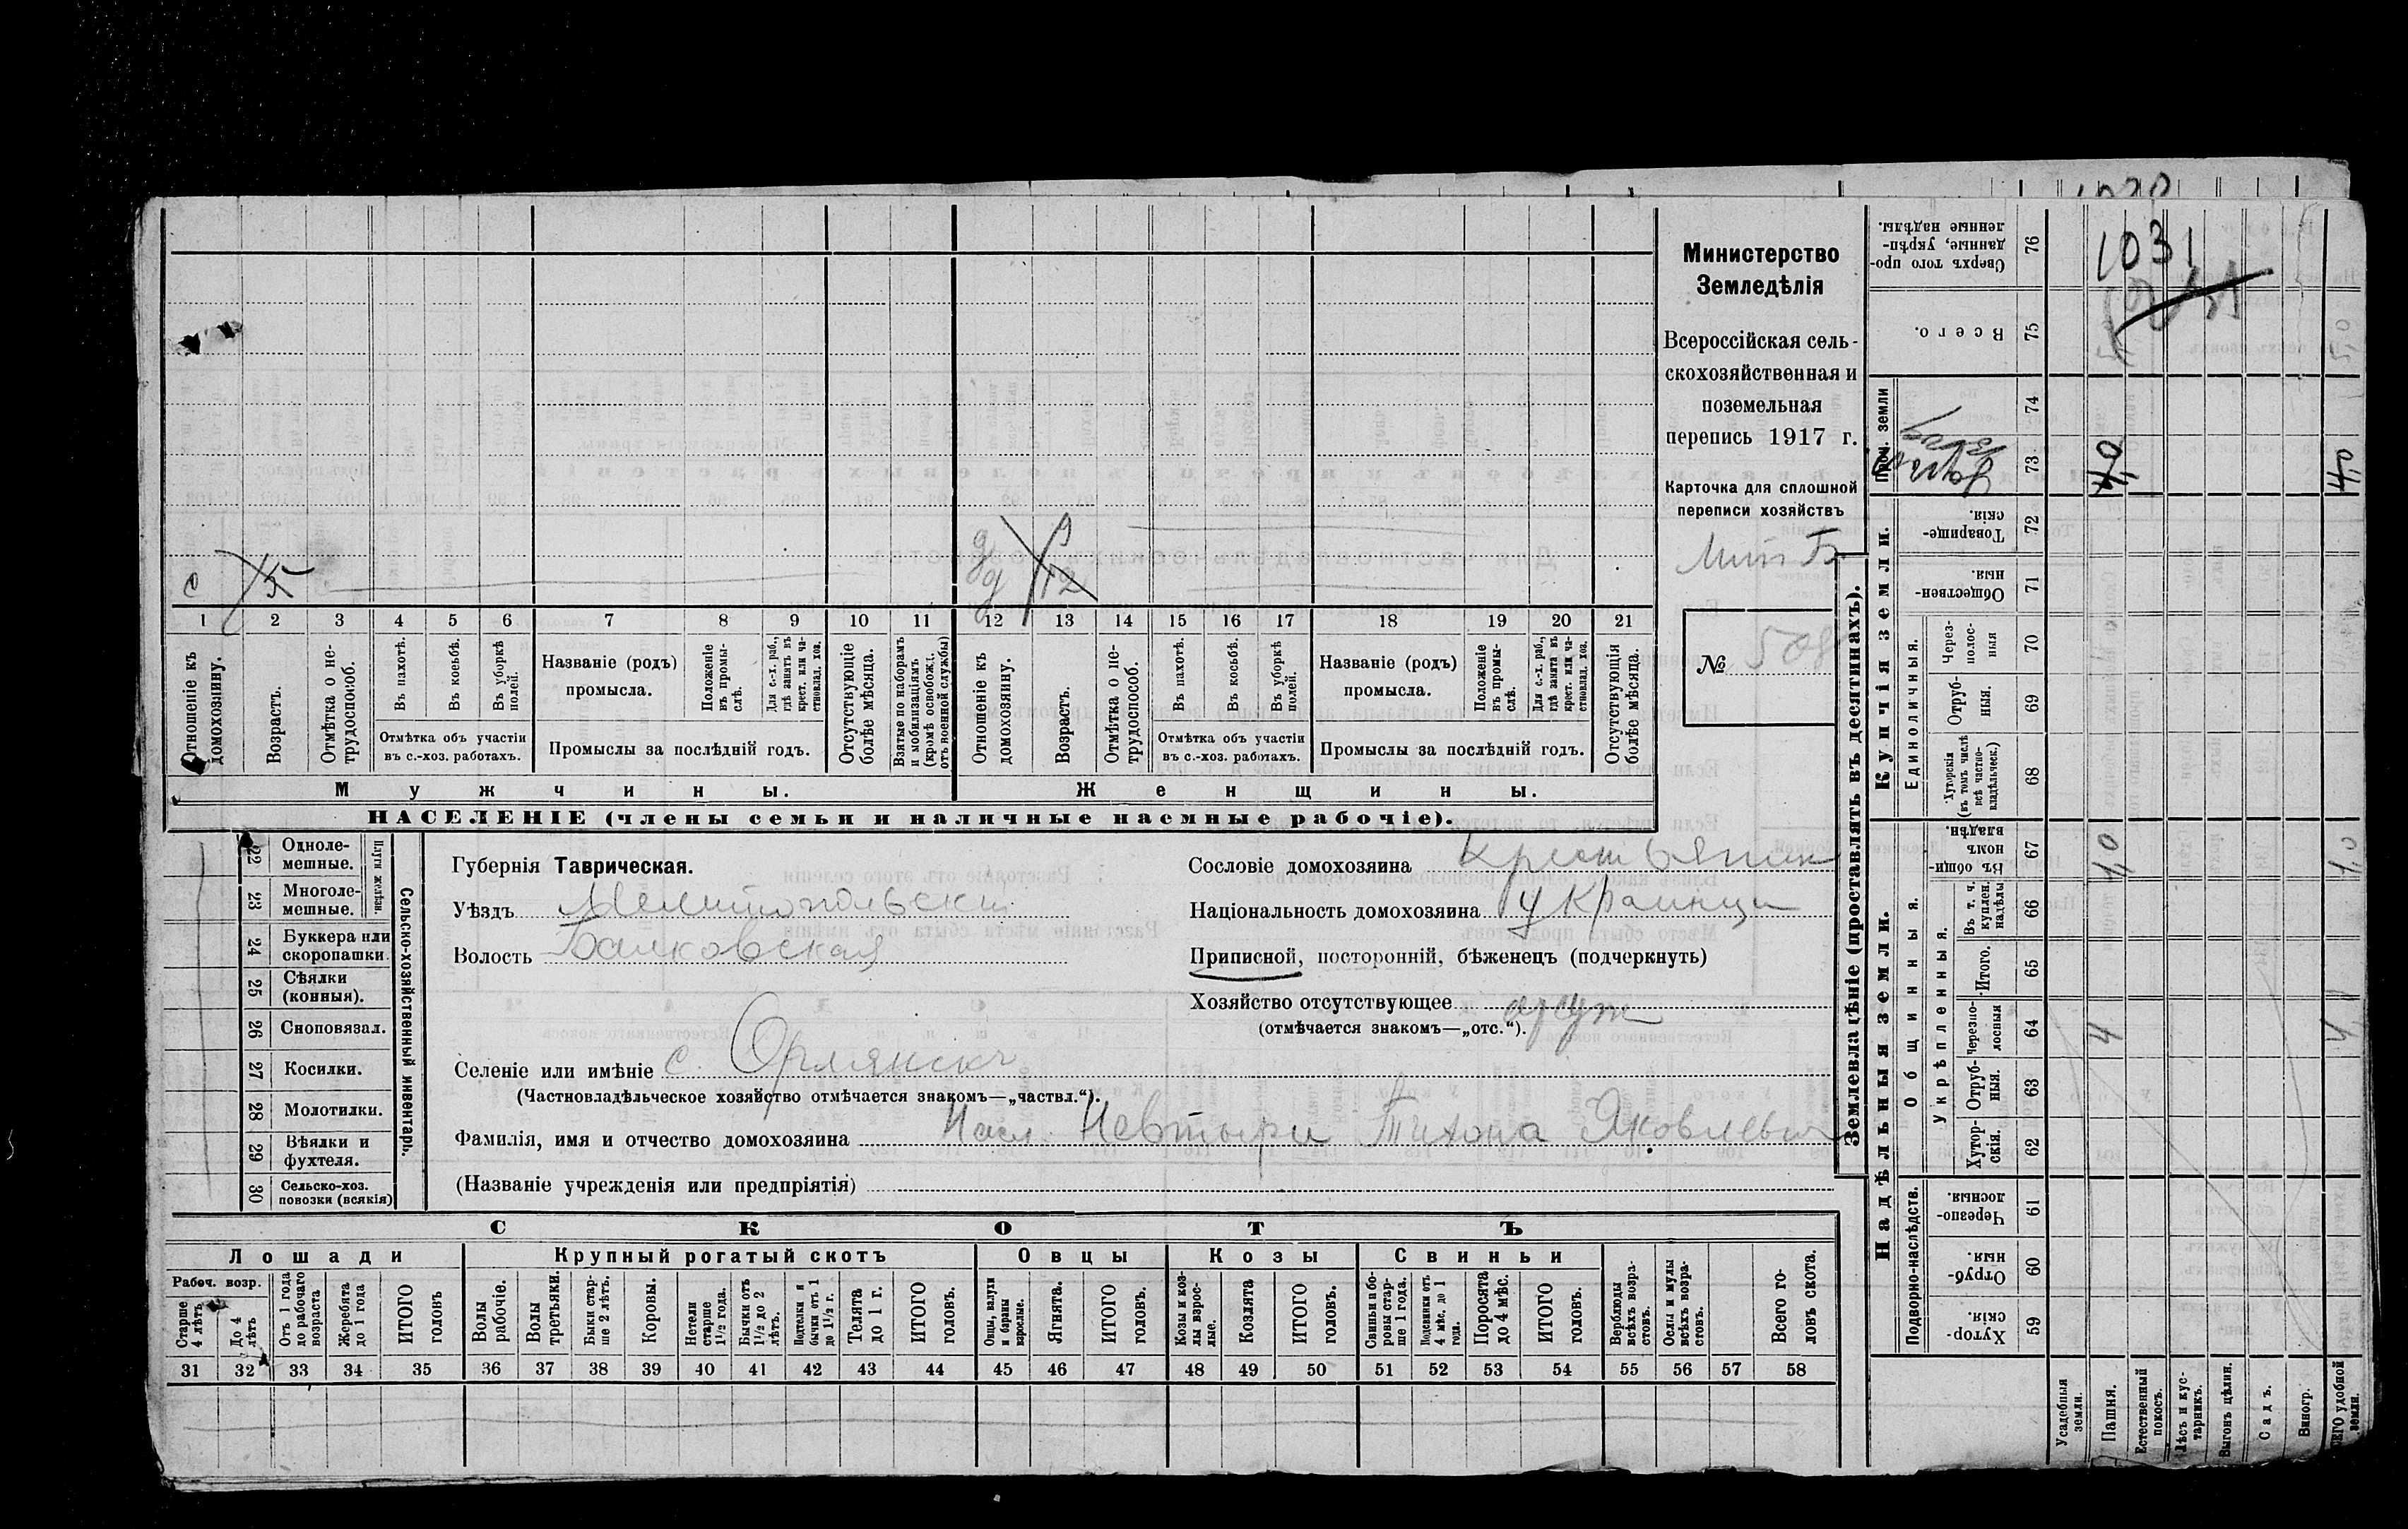 1031
с 15
д 9
д 12
1 2 3 4 5 6 7 8 9 10 11 12 13 14 15 16 17 18 19 20 21
Отношеніе къ домохозяину.
Возрастъ.
Отмѣтка о не-
трудоспособ.
Въ пахотѣ.
Въ косьбѣ.
Въ уборкѣ полей.
Отмѣтка объ участіи
въ с.-хоз. работахъ.
Названіе (родъ)
промысла.
Положеніе въ промы-
слѣ.
Для с.-х. раб., гдѣ занятъ въ крест. или ча-
стновлад. хоз.
Промыслы за послѣдній годъ.
Отсутствующіе болѣе мѣсяца.
Взятые по наборамъ и мобилизаціямъ (кромѣ освобожд. отъ военной службы)
Отношеніе къ домохозяину.
Возрастъ.
Отмѣтка о не-
трудоспособ.
Въ пахотѣ.
Въ косьбѣ.
Въ уборкѣ полей.
Отмѣтка объ участіи
въ с.-хоз. работахъ.
Названіе (родъ)
промысла.
Положеніе въ промы-
слѣ.
Для с.-х. раб., гдѣ занята въ крест. или ча-
стновлад. хоз.
Промыслы за послѣдній годъ.
Отсутствующія болѣе мѣсяца.
Мужчины.
Женщины.
НАСЕЛЕНІЕ (члены семьи и наличные наемные рабочіе).
Министерство
Земледѣлія
Всероссійская сель-
скохозяйственная и
поземельная
перепись 1917 г.
Карточка для сплошной
переписи хозяйствъ
№ 508
22 Одноле-
мешные.
23 Многоле-
мешные.
Плуги желѣзн.
24 Буккера или
скоропашки.
25 Сѣялки
(конныя).
26 Сноповязал.
27 Косилки.
28 Молотилки.
29 Вѣялки и
фухтеля.
30 Сельско-хоз.
повозки (всякія)
Сельско-хозяйственный инвентарь.
Губернія Таврическая.
Уѣздъ Мелитопольскій
Волость Балковская
Сословіе домохозяина крестьянин
Національность домохозяина украинци
Приписной, посторонній, бѣженецъ (подчеркнуть)
Хозяйство отсутствующее отсут
(отмѣчается знакомъ—„отс.“).
Селеніе или имѣніе с. Орлянскъ
(Частновладѣльческое хозяйство отмѣчается знакомъ—„частвл.“).
Фамилія, имя и отчество домохозяина Насл. Невтыри Тихона Яковлевич
(Названіе учрежденія или предпріятія)
СКОТЪ
Лошади
Крупный рогатый скотъ
Овцы
Козы
Свиньи
Рабоч. возр.
Старше 4 лѣтъ
До 4 лѣтъ
Отъ 1 года до рабочаго возраста
Жеребята до 1 года
ИТОГО головъ
Волы рабочіе.
Волы третьяки.
Быки стар-
ше 2 лѣтъ.
Коровы.
Нетели старше 1½ года.
Бычки отъ 1½ до 2 лѣтъ.
Подтелки и бычки отъ 1 до 1½ г.
Телята до 1 г.
ИТОГО головъ.
Овцы, валухи и бараны взрослые.
Ягнята.
ИТОГО головъ.
Козы и коз-
лы взрос-
лые.
Козлята
ИТОГО головъ.
Свиньи и бо-
ровы стар-
ше 1 года.
Подсвинки отъ 4 мѣс. до 1 года.
Поросята до 4 мѣс.
ИТОГО головъ.
Верблюды всѣхъ возра-
стовъ.
Ослы и мулы всѣхъ возра-
стовъ.
Всего го-
ловъ скота.
31 32 33 34 35 36 37 38 39 40 41 42 43 44 45 46 47 48 49 50 51 52 53 54 55 56 57 58
Землевладѣніе (проставлять въ десятинахъ).
Надѣльныя земли.
Купчія земли.
Проч. земли
Подворно-наслѣдств.
Общинныя.
Укрѣпленныя.
Единоличныя.
Сверхъ того про-
данные, укрѣп-
ленные надѣлы. 76
Всего. 75 5,0
74
73 4,0
Товарище-
скія. 72
Обществен-
ныя. 71
Через-
полос-
ныя 70
Отруб-
ныя. 69
Хуторскія (въ томъ числѣ всѣ частно-
владѣльческ.) 68
Въ общин-
номъ владѣн. 67 1,0 1,0
Въ т. ч. куплен. надѣлы 66
Итого. 65
Черезпо-
лосныя 64 4 4
Отруб-
ныя. 63
Хутор-
скія. 62
Черезпо-
лосныя. 61
Отруб-
ныя. 60
Хутор-
скія. 59
Усадебныя земли.
Пашня.
Естественный покосъ.
Лѣсъ и кус-
тарникъ.
Выгонъ цѣлин.
Садъ.
Виногр.
ВСЕГО удобной земли.